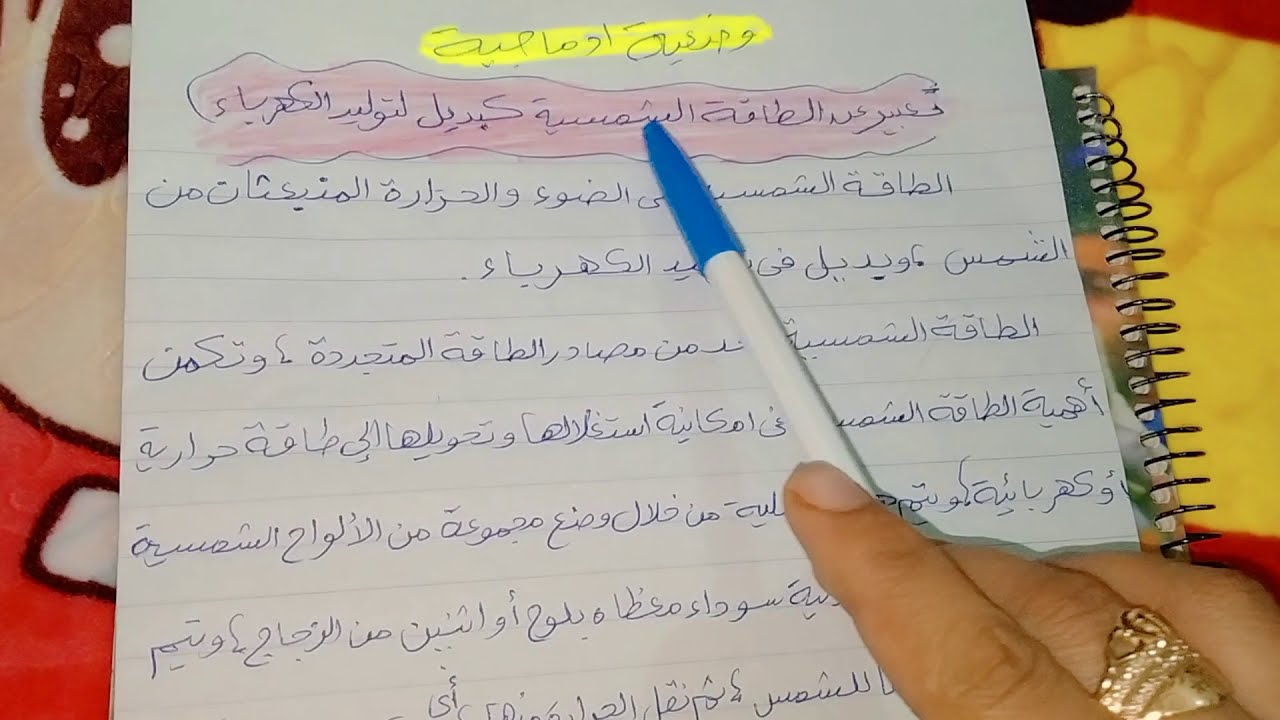 وضعية ادماجية
تعبير عن الطاقة الشمسية كبديل لتوليد الكهرباء
الطاقة الشمسية الضوء والحرارة المنبعثات من
الشمس ، وبديل في الكهرباء .
الطاقة الشمسية من مصادر الطاقة المتجددة ، وتكمن
أهمية الطاقة في امكانية استغلالها وتحويلها إلى طاقة حرارية
أو كهربائية ، ويتم من خلال وضع مجموعة من الألواح الشمسية
سوداء مغطاه بلوح أو اثنين من الزجاج ، ويتم
للشمس ، ثم نقل أي